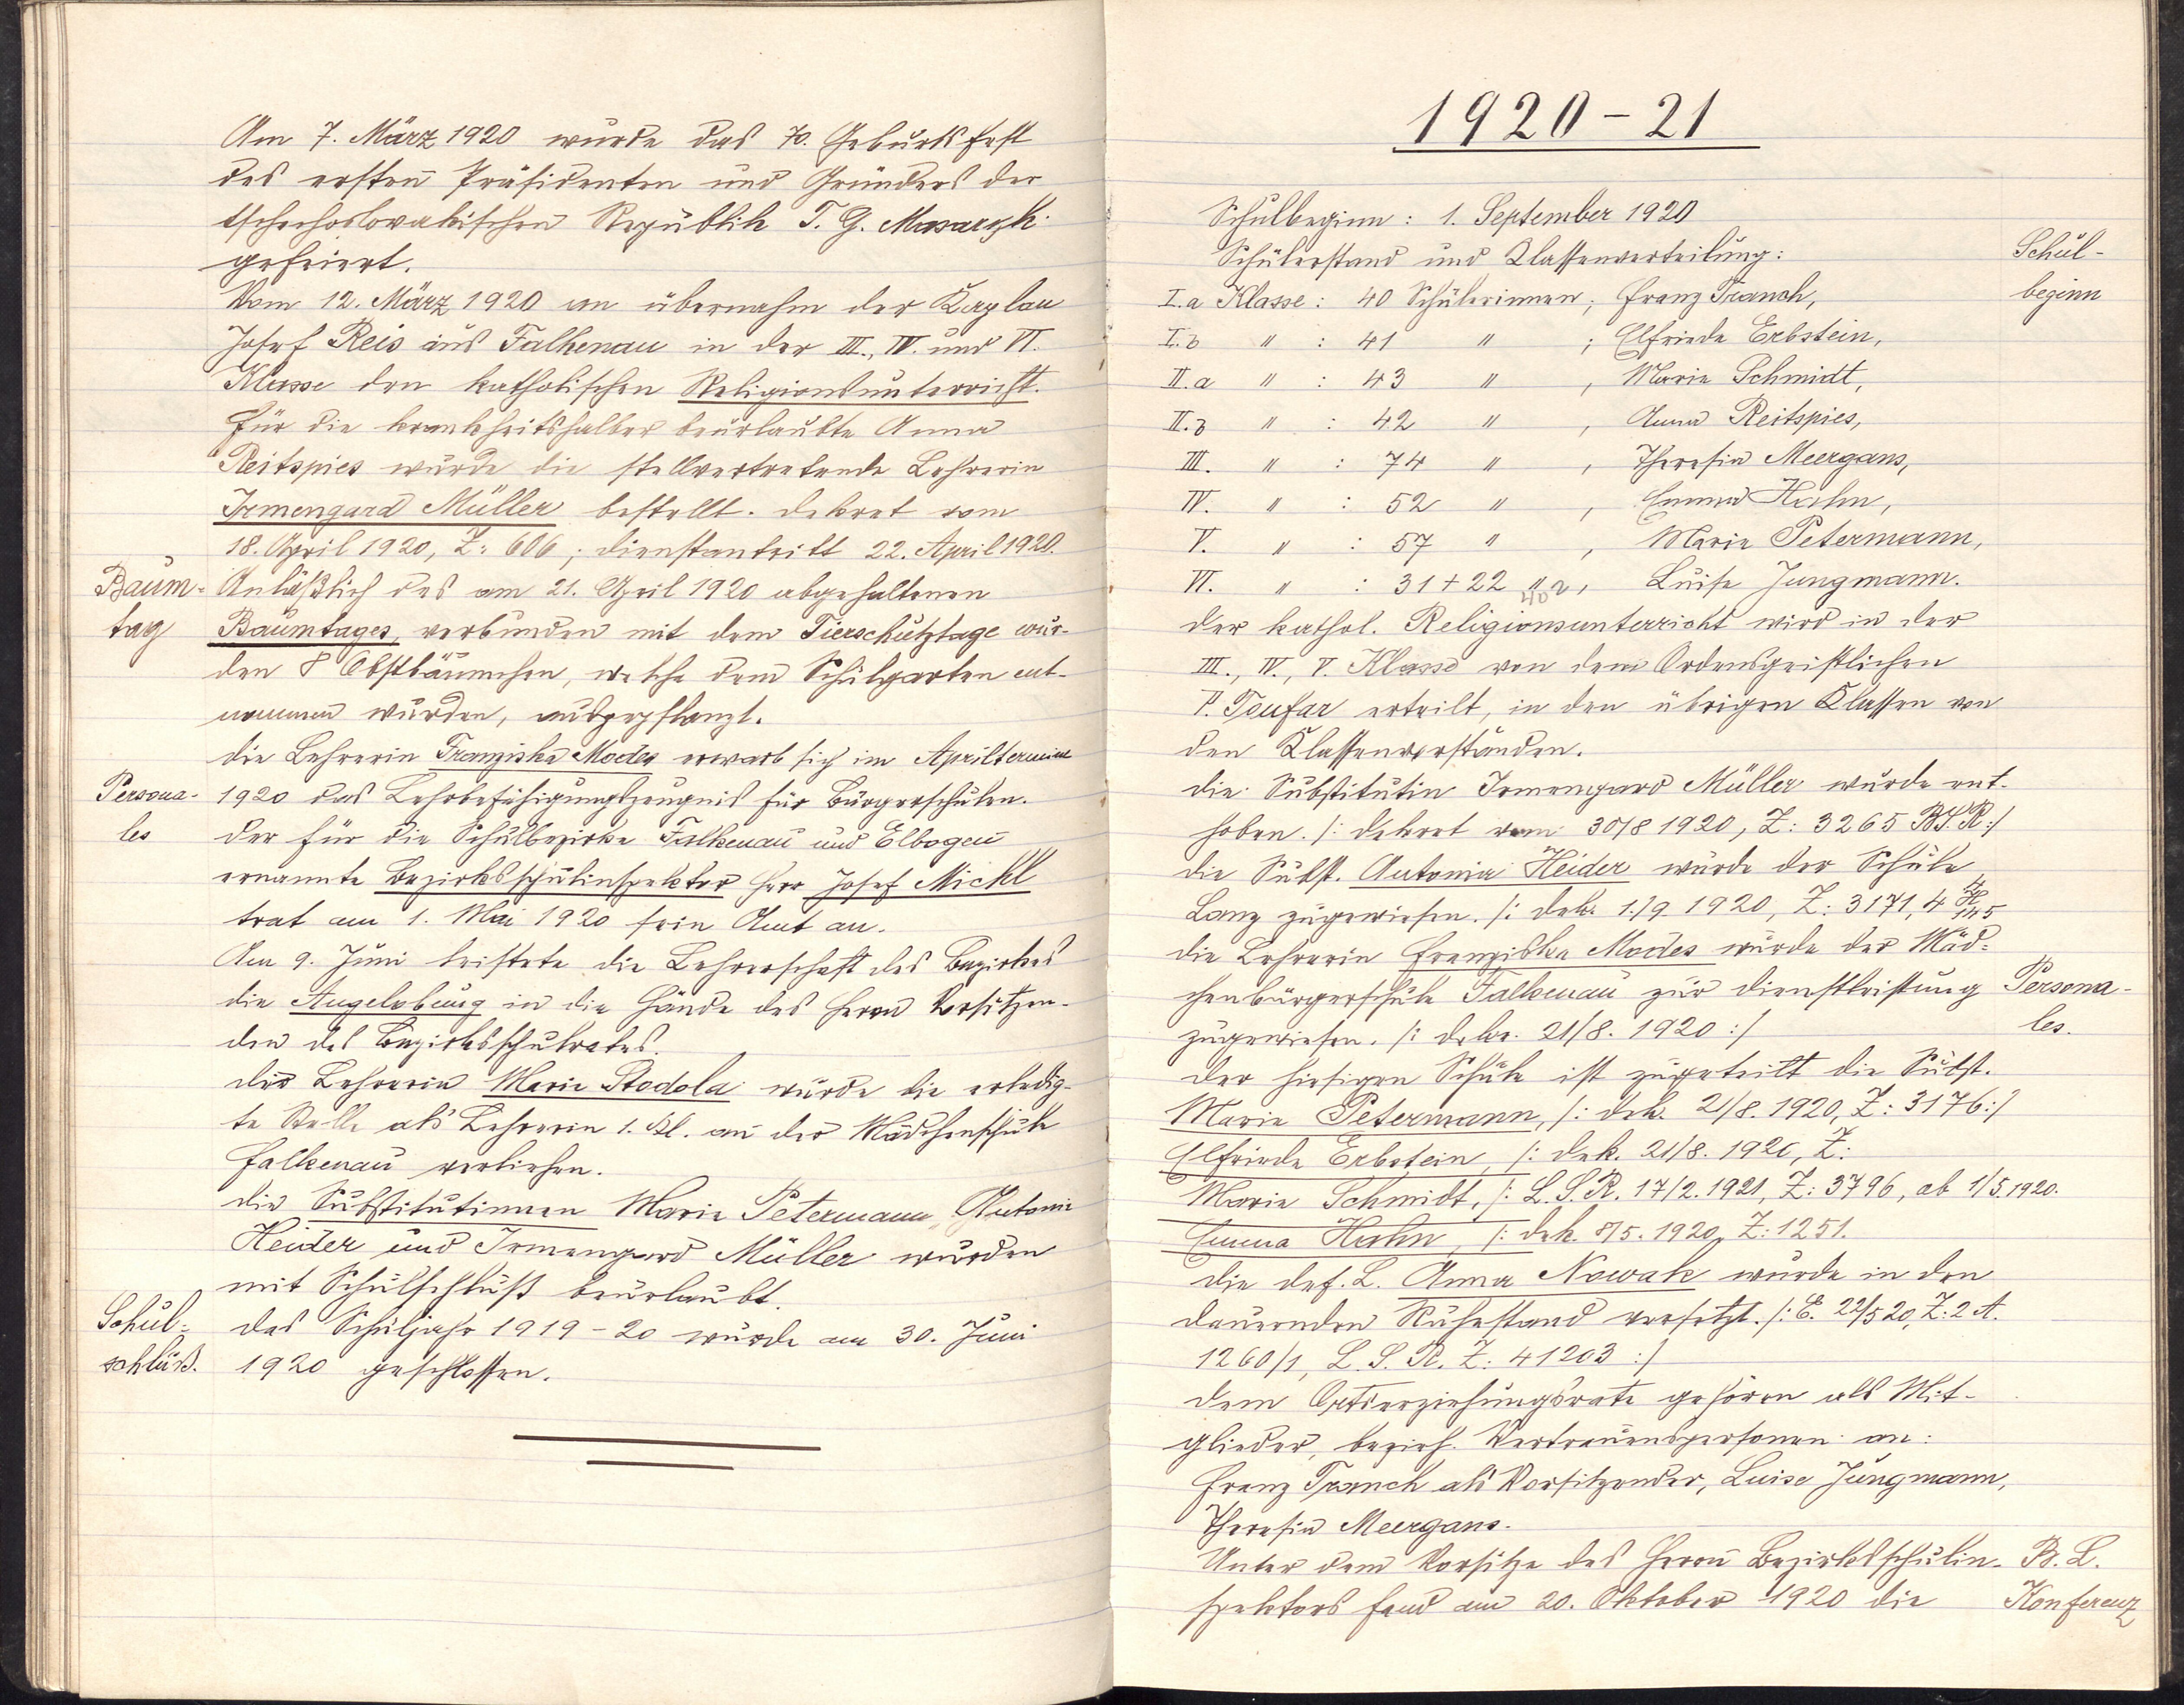 Am 7. März 1920 wurde das 70. Geburtsfest
des ersten Präsidenten und Gründers der
tschechoslovakischen Republik T. G. Masaryk
gefeiert.
Vom 12. März 1920 an übernahm der Kaplan
Josef Reis aus Falkenau in der III., IV. und VI.
Klasse den katholischen Religionsunterricht.
Für die krankheitshalber beurlaubte Anna
Reitspies wurde die stellvertretende Lehrerin
Irmengard Müller bestellt. Dekret vom
18. April 1920, Z: 606; Dienstantritt 22. April 1920.
Baum- Anläßlich des am 21. April 1920 abgehaltenen
tag Baumtages, verbunden mit dem Tierschutztage wur-
den 8 Obstbäumchen, welche dem Schulgarten ent-
nommen wurden, ausgepflanzt.
Die Lehrerin Franziska Modes erwarb sich im Apriltermin
Persona- 1920 das Lehrbefähigungszeugnis für Bürgerschulen.
les Der für die Schulbezirke Falkenau und Elbogen
ernannte Bezirksschulinspektor Herr Josef Mickl
trat am 1. Mai 1920 sein Amt an.
Am 9. Juni leistete die Lehrerschaft des Bezirkes
die Angelobung in die Hände des Herrn Vorsitzen-
den des Bezirksschulrates.
Der Lehrerin Marie Stodola wurde die erledig-
te Stelle als Lehrerin 1. Kl. an der Mädchenschule
Falkenau verliehen.
Die Substitutinnen Marie Petermann, Antonia
Heider und Irmengard Müller wurden
mit Schulschluß beurlaubt.
Schul- Das Schuljahr 1919-20 wurde am 30. Juni
schluß. 1920 geschlossen.
1920-21
Schulbeginn: 1. September 1920
Schülerstand und Klassenverteilung: Schul-
I.a Klasse: 40 Schülerinnen; Franz Tranch, beginn
I.b " : 41 " ; Elfriede Erbstein,
II.a " : 43 " , Marie Schmidt,
II.b " : 42 " , Anna Reitspies,
III. " : 74 " , Theresia Meergans,
IV. " : 52 " , Emma Hahn,
V. " : 57 " , Marie Petermann,
VI. " : 31+22 " , Luise Jungmann.
Der kathol. Religionsunterricht wird in der
III., IV., V. Klasse von dem Ordensgeistlichen
P. Toufar erteilt, in den übrigen Klassen von
den Klassenvorständen.
Die Substitutin Irmengard Müller wurde ent-
hoben. /: Dekret vom 30/8 1920, Z: 3265 B.S.R :/
Die Subst. Antonia Heider wurde der Schule
Lanz zugewiesen. /: Dek. 1./9. 1920, Z: 3171,
Die Lehrerin Franziska Modes wurde der Mäd-
chenbürgerschule Falkenau zur Dienstleistung Persona-
zugewiesen. /: Dekr. 21/8. 1920 :/ les.
Der hiesigen Schule ist zugeteilt die Subst.
Marie Petermann, /: Dek. 21/8. 1920, Z: 3176 :/
Elfriede Erbstein, /: Dek. 21/8. 1920, Z:
Marie Schmidt, /: L.S.R. 17/2. 1921, Z: 3796, ab 1/5. 1920.
Emma Hahn, /: Dek. 8/5. 1920, Z: 1251.
Die def. L. Anna Nowak wurde in den
dauernden Ruhestand versetzt. /: E. 22/5 20, Z: 2 A.
1260/1, L.S.R. Z: 41203 :/
Dem Ortserziehungsrate gehören als Mit-
glieder, bezieh. Vertrauenspersonen an:
Franz Tranch als Vorsitzender, Luise Jungmann,
Theresia Meergans.
Unter dem Vorsitze des Herrn Bezirksschulin- B. L.
spektors fand am 20. Oktober 1920 die Konferenz